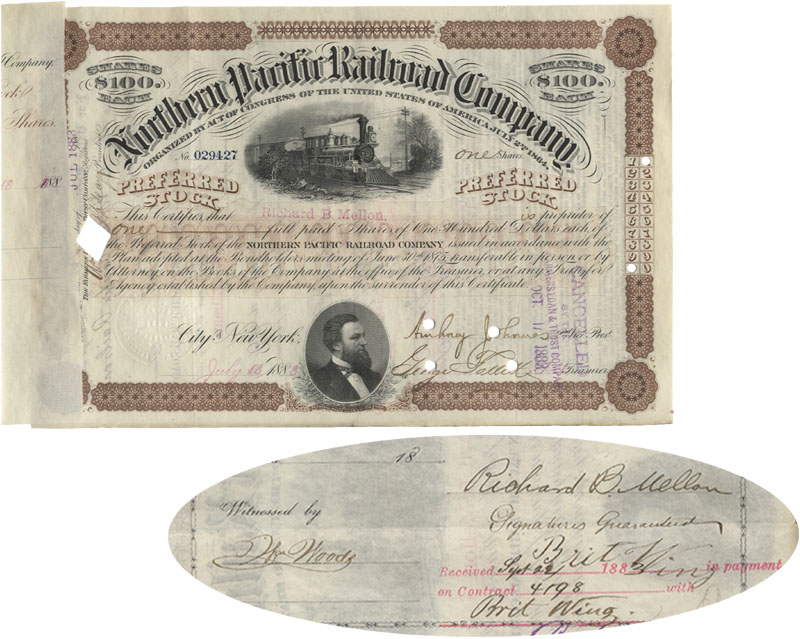 Company.
Shares.
188
JUL 1883
SHARES $100. EACH
SHARES $100. EACH
Northern Pacific Railroad Company,
ORGANIZED BY ACT OF CONGRESS OF THE UNITED STATES OF AMERICA, JULY 2ND 1864.
No. 029427
One Shares
PREFERRED STOCK
PREFERRED STOCK
This Certifies, that Richard B. Mellon, is proprietor of
one full paid Shares of One Hundred Dollars each, of
the Preferred Stock of the NORTHERN PACIFIC RAILROAD COMPANY issued in accordance with the
Plan adopted at the Bondholders meeting of June 30th 1875, transferable in person or by
Attorney on the Books of the Company at the office of the Treasurer, or at any Transfer
Agency established by the Company, upon the surrender of this Certificate.
City of New York,
July 13 1883
Anthony J. Thomas
George
Treasurer
CANCELLED
BY
FARMERS LOAN & TRUST COMPANY
OCT 17 1883
1 2
2 3
3 4
4 5
5 6
6 7
7 8
8 9
9 0
18
Richard B. Mellon
Witnessed by
Signatures Guaranteed
Wm Woods
Brit Wing
Received Sept 22 1883 in payment
on Contract 4198 with
Brit Wing.